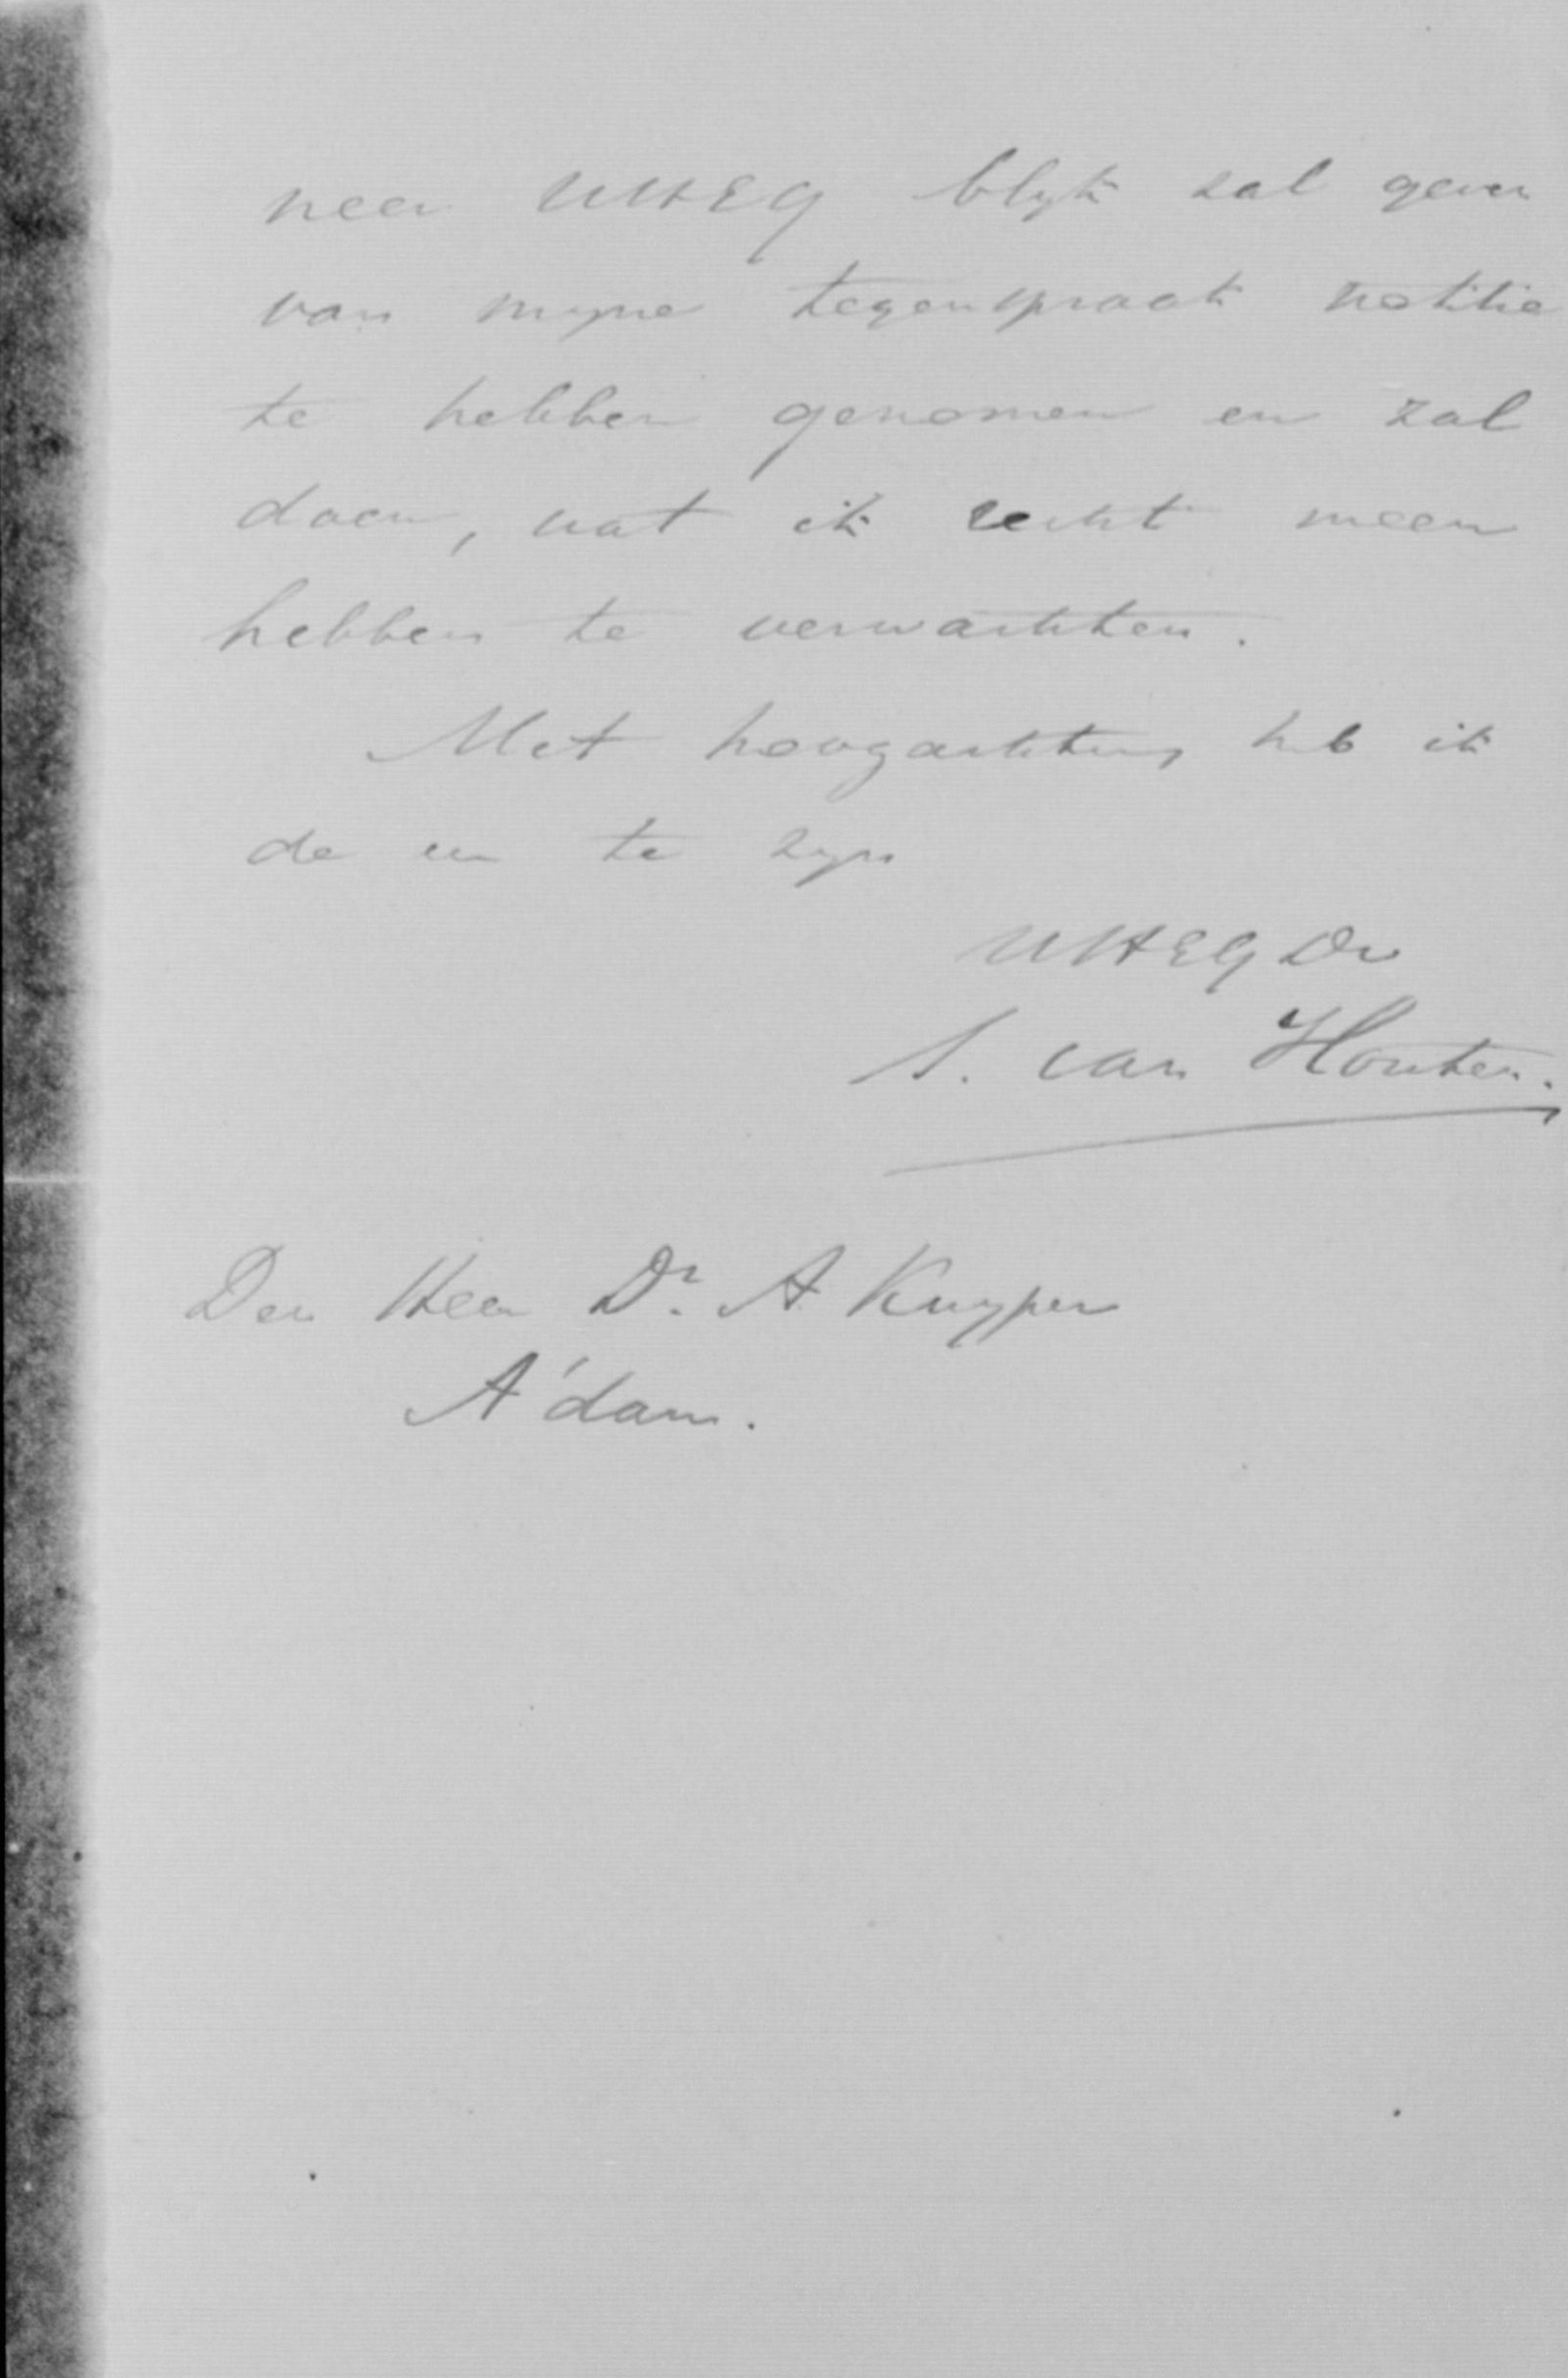 neer UHEG blijk zal geven
van mijne tegenspraak notitie
te hebben genomen en zal
doen, wat ik recht meen
hebben te verwachten.
Met hoogachting heb ik
de eer te zijn
UHEG Dr
S. van Houten.
Den Heer Dr. A Kuyper
A'dam.